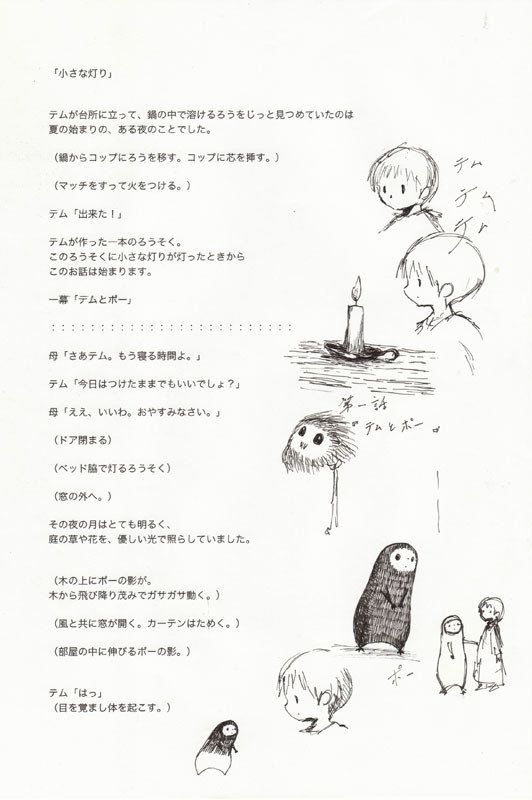 「小さな灯り」
テムが台所に立って、鍋の中で溶けるろうをじっと見つめていたのは
夏の始まりの、ある夜のことでした。
（鍋からコップにろうを移す。コップに芯を挿す。）
（マッチをすって火をつける。）
テム「出来た！」
テムが作った一本のろうそく。
このろうそくに小さな灯りが灯ったときから
このお話は始まります。
一幕「テムとポー」
：：：：：：：：：：：：：：：：：：：：：：：：：
母「さあテム。もう寝る時間よ。」
テム「今日はつけたままでもいいでしょ？」
母「ええ、いいわ。おやすみなさい。」
（ドア閉まる）
（ベッド脇で灯るろうそく）
（窓の外へ。）
その夜の月はとても明るく、
庭の草や花を、優しい光で照らしていました。
（木の上にポーの影が。
木から飛び降り茂みでガサガサ動く。）
（風と共に窓が開く。カーテンはためく。）
（部屋の中に伸びるポーの影。）
テム「はっ」
（目を覚まし体を起こす。）
テム
テム
テム
第一話
『テムとポー』
ポー